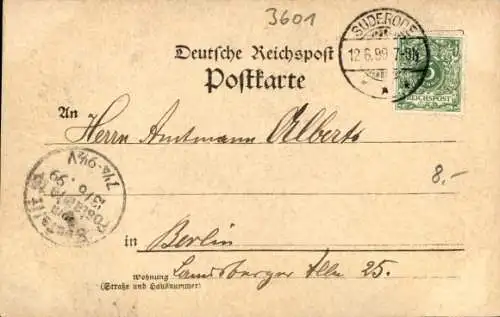 3601
SUDERODE
12.6.99 7-8N
REICHSPOST
Deutsche Reichspost
Postkarte
An
Herrn Amtmann Alberts
8.-
7¼-9¼V
13/6.99
in Berlin
Wohnung
Landsberger Allee 25.
(Straße und Hausnummer)